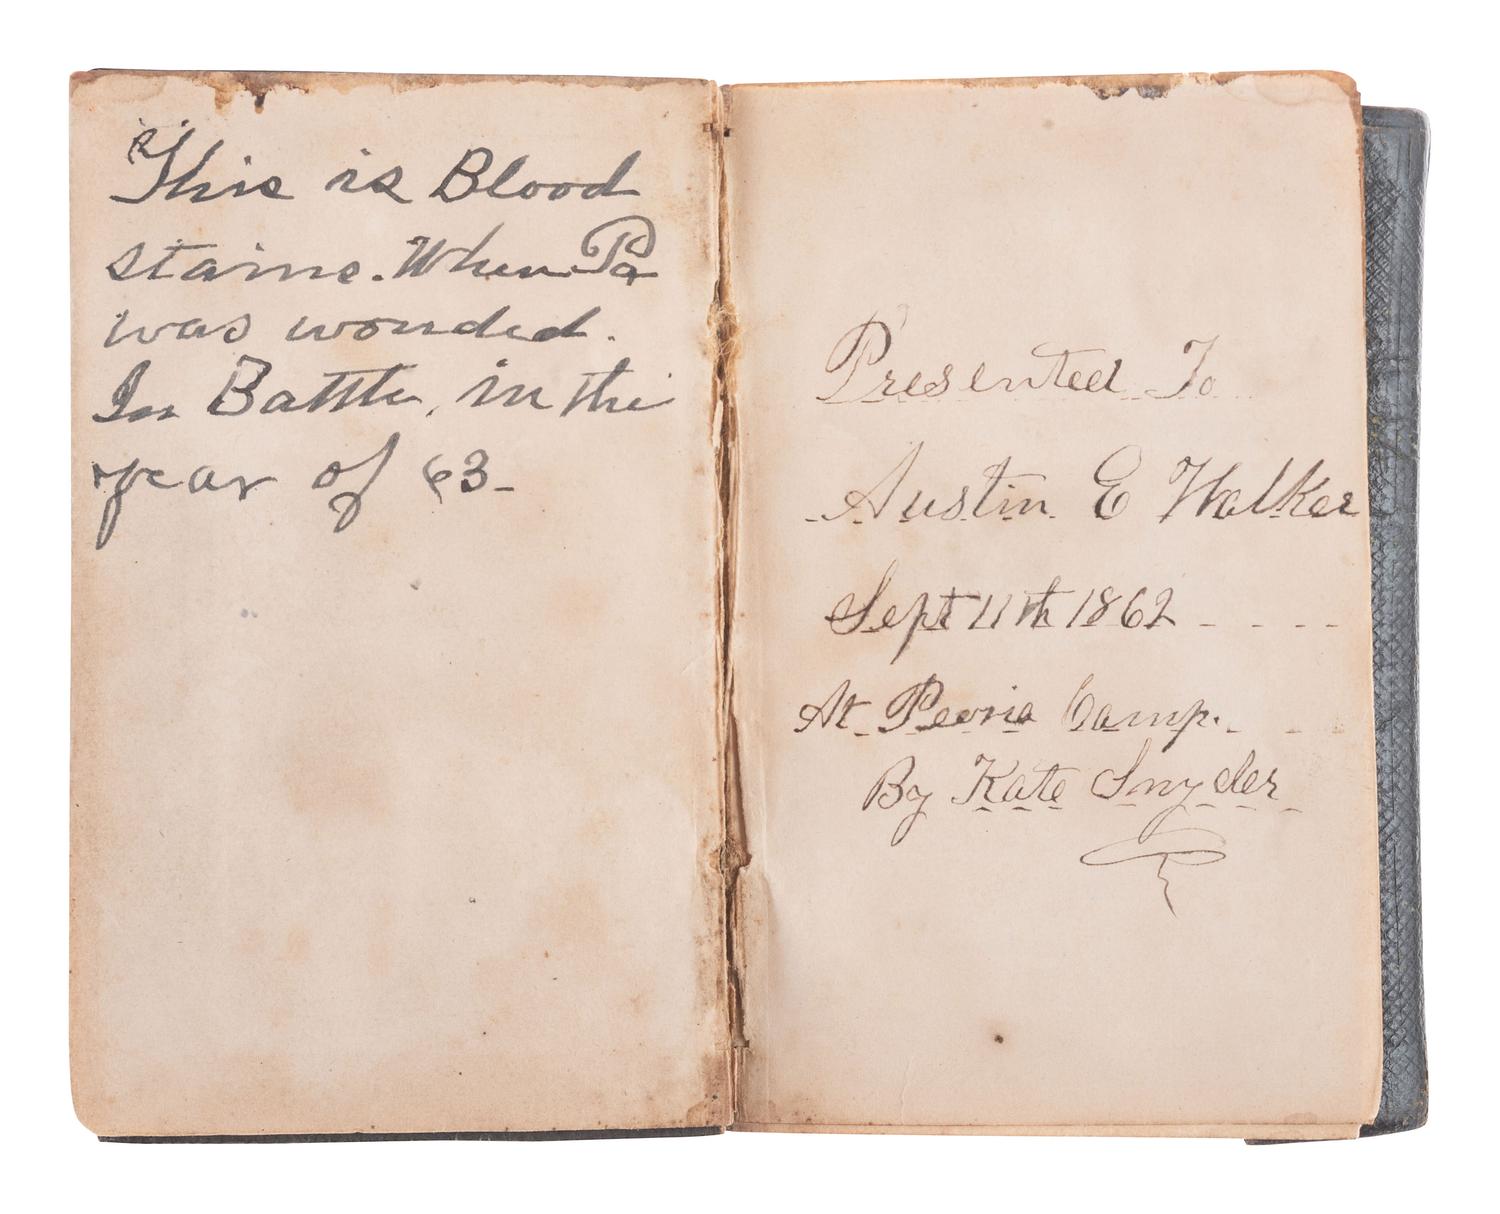 This is Blood
stains. When Pa
was wounded.
In Battle, in the
year of 63-
Presented To
Austin E Walker
Sept 11th 1862
At Peoria Camp.
By Kate Snyder